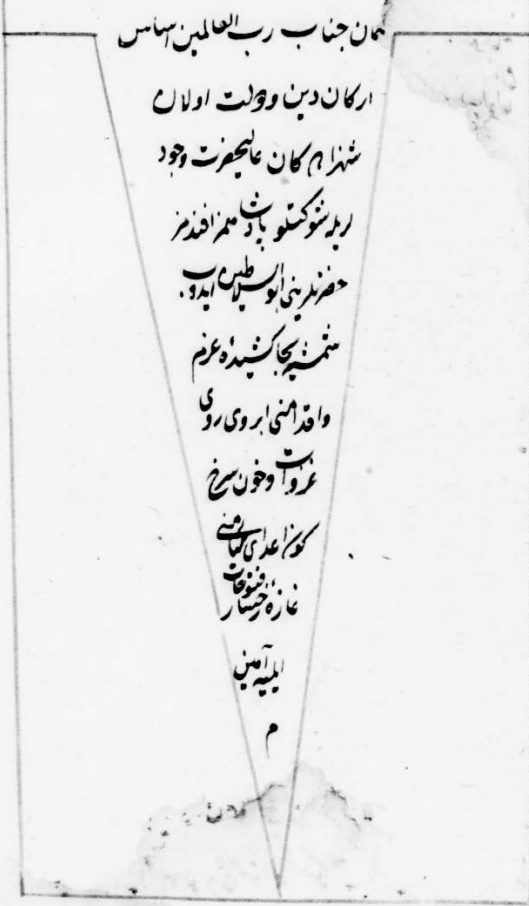 همان جناب رب العالمين اساس
اركان دين ودولت اولان
شهزادكان عاليحضرت وجود
لريله شوكتلو پادشاهمز افندمز
حضرتلرينى ابو السلاطين ايدوب
شمشير كشيدۀ عزم
واقدامنى ابروى روى
غزوات وخون سرخ
اعداى
غازۀ رخسار فتوحات
ايليه آمين
م